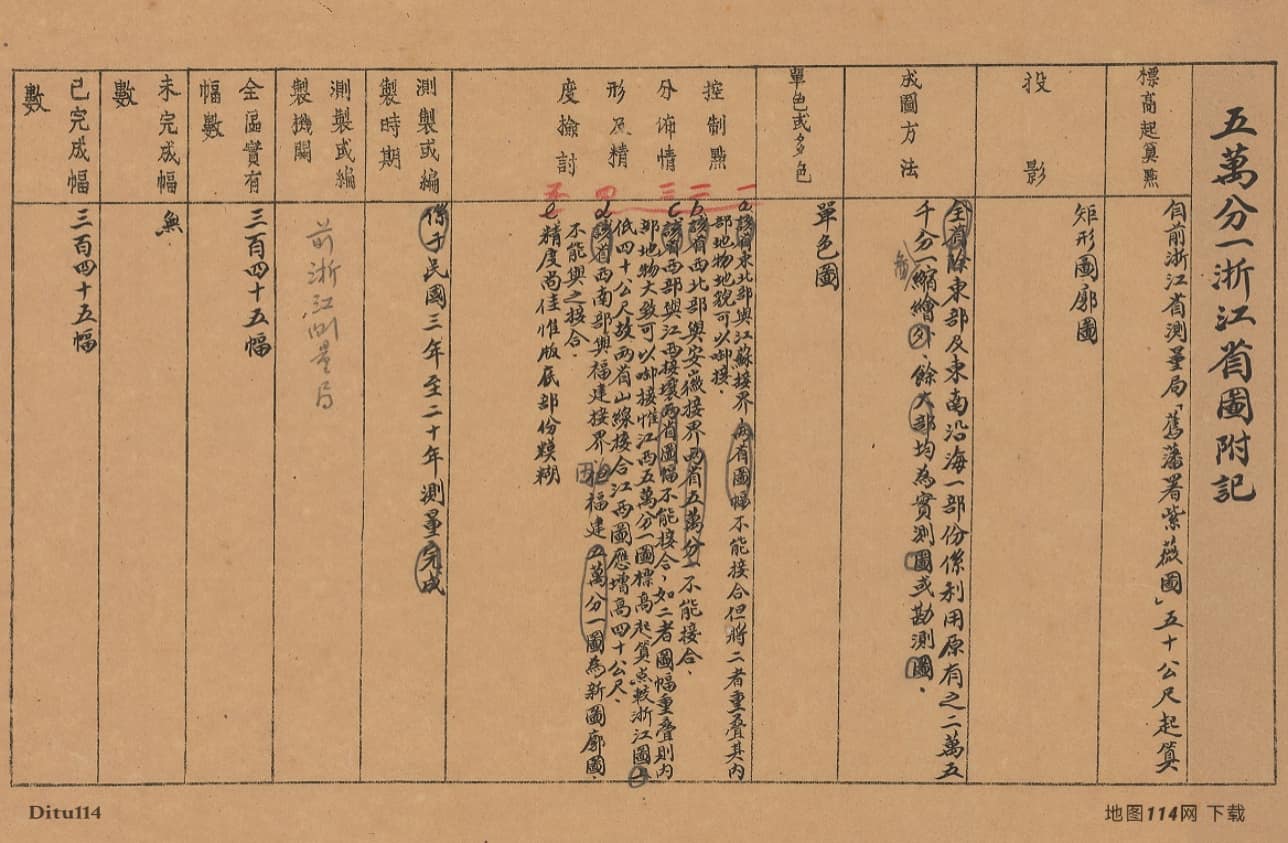 五萬分一浙江省圖附記
標高起算點
自前浙江省測量局「舊藩署紫薇園」五十公尺起算
投影
矩形圖廓圖
成圖方法
全省除東部及東南沿海一部份係利用原有之二萬五
千分一縮繪外、餘大部均為實測圖或勘測圖、
單色或多色
單色圖
控制點
分佈情
形及精
度撿討
一 二 三 四 五
a該省東北部與江蘇接界兩省圖幅不能接合但將二者重叠其内
部地物地貌可以啣接、
b該省西北部與安徽接界兩省五萬分一不能接合、
c該省西部與江西接壤兩省圖幅不能接合，如二者圖幅重叠則内
部地物大致可以啣接惟江西五萬分一圖標高起算点較浙江圖
低四十公尺故兩省山線接合江西圖應增高四十公尺、
d該省西南部與福建接界 因 福建五萬分一圖為新圖廓圖、
不能與之接合、
e精度尚佳惟版底部份糢糊
測製或編
製時期
係于民國三年至二十年測量完成
測製或編
製機關
前浙江測量局
全區實有
幅數
三百四十五幅
未完成幅
數
無
已完成幅
數
三百四十五幅
Ditu114
地图114网 下载